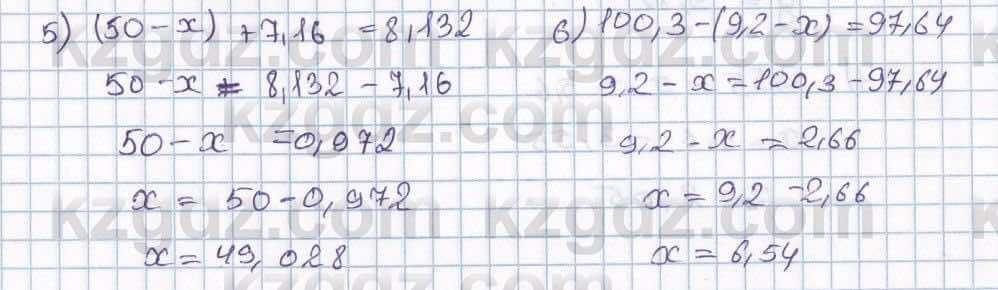 5) (50 - x) + 7,16 = 8,132
50 - x = 8,132 - 7,16
50 - x = 0,972
x = 50 - 0,972
x = 49,028
6) 100,3 - (9,2 - x) = 97,64
9,2 - x = 100,3 - 97,64
9,2 - x = 2,66
x = 9,2 - 2,66
x = 6,54
kzgdz.com
kzgdz.com
kzgdz.com
kzgdz.com